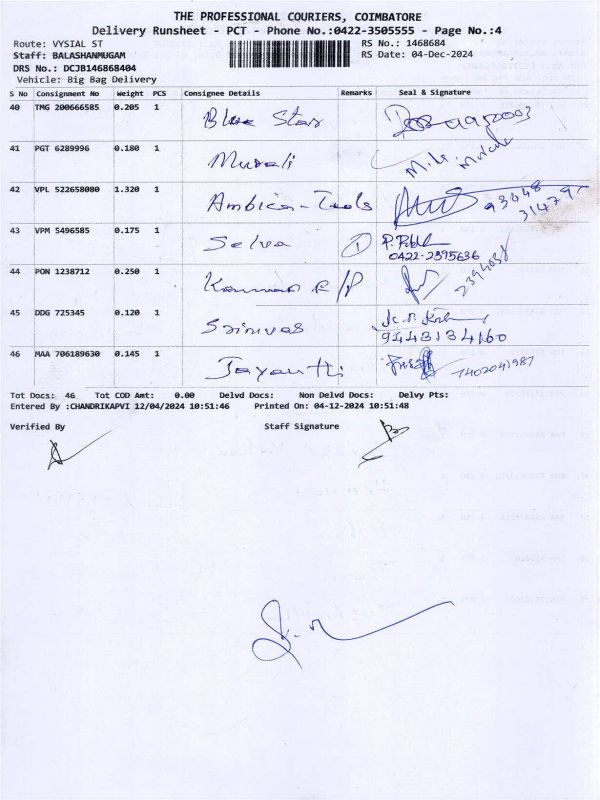 THE PROFESSIONAL COURIERS, COIMBATORE
Delivery Runsheet - PCT - Phone No.:0422-3505555 - Page No.:4
Route: VYSIAL ST RS No.: 1468684
Staff: BALASHANMUGAM RS Date: 04-Dec-2024
DRS No.: DCJB146868404
Vehicle: Big Bag Delivery
S No Consignment No Weight PCS Consignee Details Remarks Seal & Signature
40 TMG 200666585 0.205 1 Blue Star
41 PGT 6289996 0.180 1 Murali
42 VPL 522658080 1.320 1 Ambica-Tools 93648
43 VPM 5496585 0.175 1 Selva 1
0422-2395636
44 PON 1238712 0.250 1
45 DDG 725345 0.120 1 Srinivas
9443134160
46 MAA 706189630 0.145 1 Jayanthi 7402041987
Tot Docs: 46 Tot COD Amt: 0.00 Delvd Docs: Non Delvd Docs: Delvy Pts:
Entered By :CHANDRIKAPVI 12/04/2024 10:51:46 Printed On: 04-12-2024 10:51:48
Verified By Staff Signature